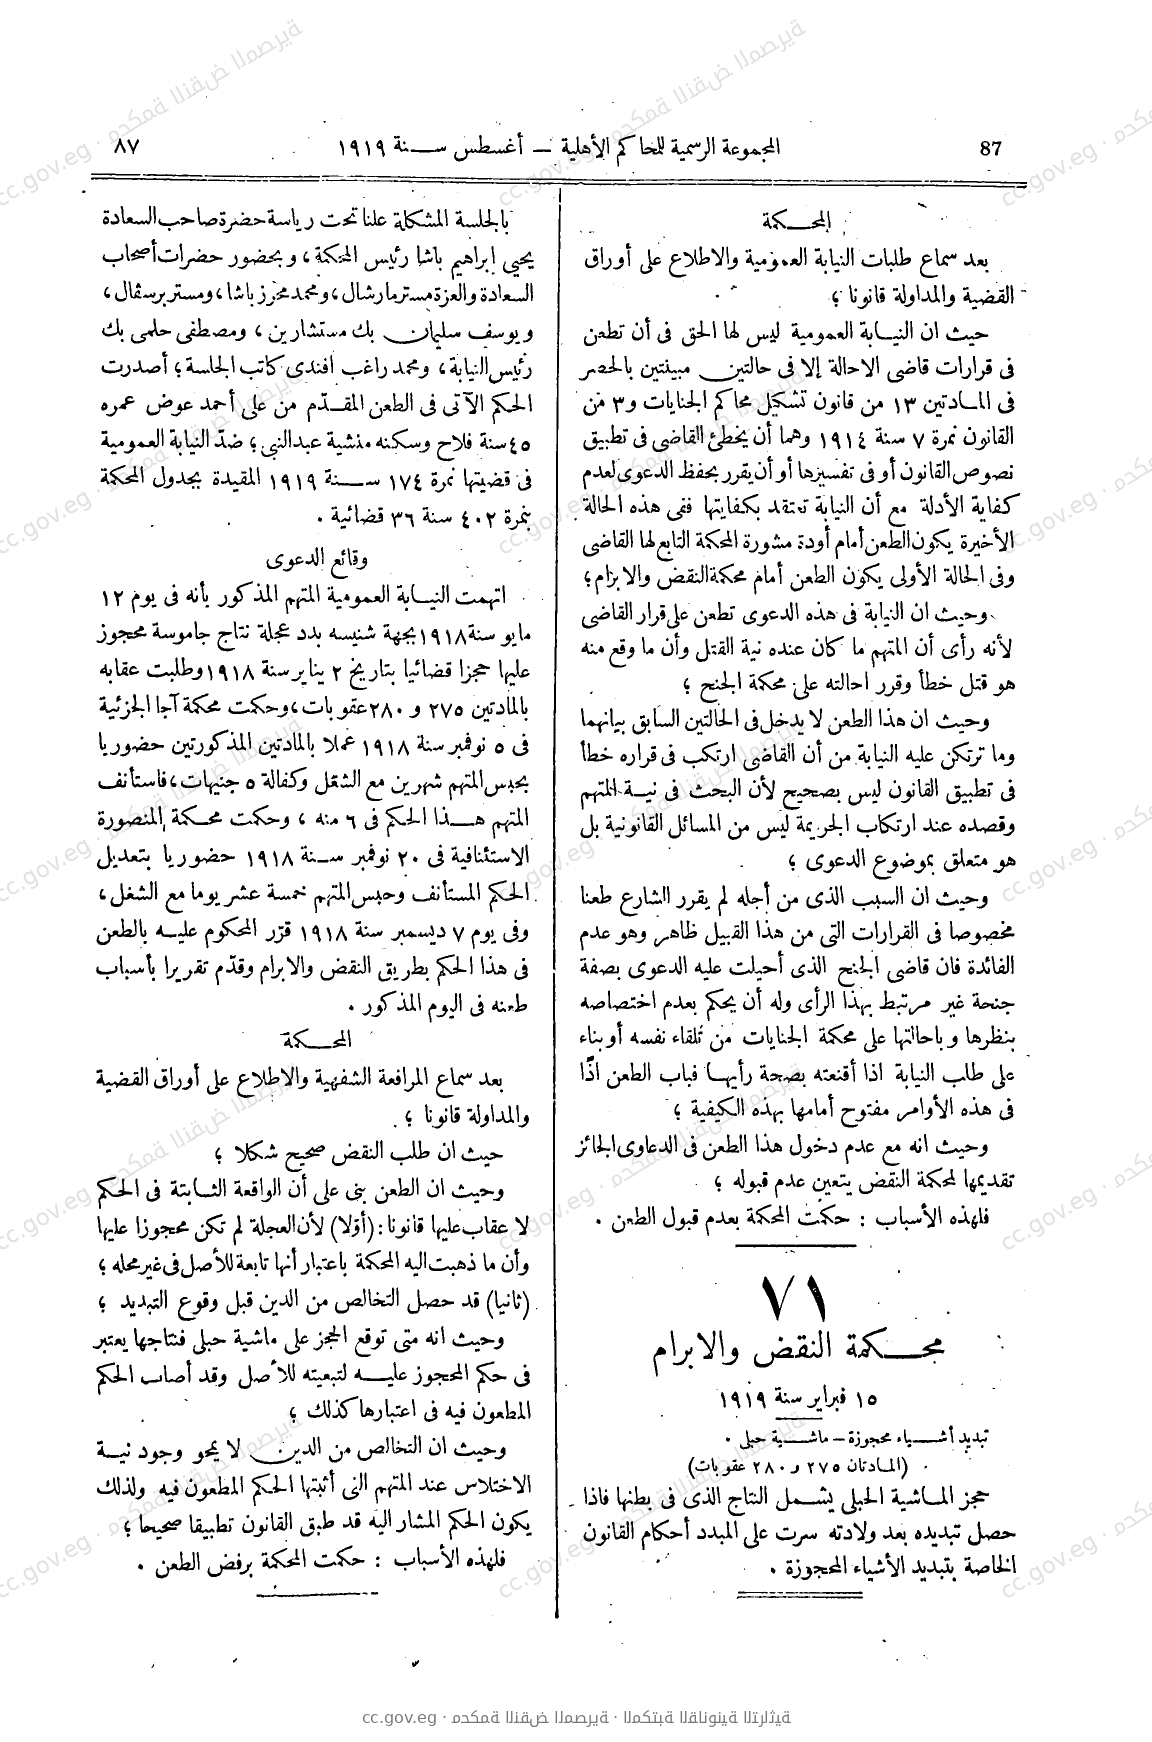 87
المجموعة الرسمية للمحاكم الأهلية — أغسطس سنة ١٩١٩
٨٧
المحكمة
بعد سماع طلبات النيابة العمومية والاطلاع على أوراق
القضية والمداولة قانونا ؛
حيث ان النيابة العمومية ليس لها الحق فى أن تطعن
فى قرارات قاضى الاحالة إلا فى حالتين مبينتين بالحصر
فى المادتين ١٣ من قانون تشكيل محاكم الجنايات و٣ من
القانون نمرة ٧ سنة ١٩١٤ وهما أن يخطئ القاضى فى تطبيق
نصوص القانون أو فى تفسيرها أو أن يقرر بحفظ الدعوى لعدم
كفاية الأدلة مع أن النيابة تعتقد بكفايتها ففى هذه الحالة
الأخيرة يكون الطعن أمام أودة مشورة المحكمة التابع لها القاضى
وفى الحالة الأولى يكون الطعن أمام محكمة النقض والابرام ؛
وحيث ان النيابة فى هذه الدعوى تطعن على قرار القاضى
لأنه رأى أن المتهم ما كان عنده نية القتل وأن ما وقع منه
هو قتل خطأ وقرر احالته على محكمة الجنح ؛
وحيث ان هذا الطعن لا يدخل فى الحالتين السابق بيانهما
وما ترتكن عليه النيابة من أن القاضى ارتكب فى قراره خطأ
فى تطبيق القانون ليس بصحيح لأن البحث فى نيـة المتهم
وقصده عند ارتكاب الجريمة ليس من المسائل القانونية بل
هو متعلق بموضوع الدعوى ؛
وحيث ان السبب الذى من أجله لم يقرر الشارع طعنا
مخصوصا فى القرارات التى من هذا القبيل ظاهر وهو عدم
الفائدة فان قاضى الجنح الذى أحيلت عليه الدعوى بصفة
جنحة غير مرتبط بهذا الرأى وله أن يحكم بعدم اختصاصه
بنظرها وباحالتها على محكمة الجنايات من تلقاء نفسه أو بناء
على طلب النيابة اذا أقنعته بصحة رأيها فباب الطعن اذًا
فى هذه الأوامر مفتوح أمامها بهذه الكيفية ؛
وحيث انه مع عدم دخول هذا الطعن فى الدعاوى الجائز
تقديمها لمحكمة النقض يتعين عدم قبوله ؛
فلهذه الأسباب : حكمت المحكمة بعدم قبول الطعن .
٧١
محكمة النقض والابرام
١٥ فبراير سنة ١٩١٩
تبديد أشياء محجوزة — ماشية حبلى .
(المادتان ٢٧٥ و ٢٨٠ عقوبات)
حجز الماشية الحبلى يشمل النتاج الذى فى بطنها فاذا
حصل تبديده بعد ولادته سرت على المبدد أحكام القانون
الخاصة بتبديد الأشياء المحجوزة .
بالجلسة المشكلة علنا تحت رياسة حضرة صاحب السعادة
يحيى ابراهيم باشا رئيس المحكمة ، وبحضور حضرات أصحاب
السعادة والعزة مستر مارشال ، ومحمد محرز باشا ، ومستر برسفال ،
ويوسف سليمان بك مستشارين ، ومصطفى حلمى بك
رئيس النيابة ، ومحمد راغب افندى كاتب الجلسة ؛ أصدرت
الحكم الآتى فى الطعن المقدّم من على أحمد عوض عمره
٤٥ سنة فلاح وسكنه منشية عبدالنبى ؛ ضدّ النيابة العمومية
فى قضيتها نمرة ١٧٤ سنة ١٩١٩ المقيدة بجدول المحكمة
بنمرة ٤٠٢ سنة ٣٦ قضائية .
وقائع الدعوى
اتهمت النيابة العمومية المتهم المذكور بأنه فى يوم ١٢
مايو سنة ١٩١٨ بجهة شنيسه بدد عجلة نتاج جاموسة محجوز
عليها حجزا قضائيا بتاريخ ٢ يناير سنة ١٩١٨ وطلبت عقابه
بالمادتين ٢٧٥ و ٢٨٠ عقوبات ، وحكمت محكمة آجا الجزئية
فى ٥ نوفمبر سنة ١٩١٨ عملا بالمادتين المذكورتين حضوريا
بحبس المتهم شهرين مع الشغل وكفالة ٥ جنيهات ، فاستأنف
المتهم هـذا الحكم فى ٦ منه ، وحكمت محكمة المنصورة
الاستئنافية فى ٢٠ نوفمبر سنة ١٩١٨ حضوريا بتعديل
الحكم المستأنف وحبس المتهم خمسة عشر يوما مع الشغل ،
وفى يوم ٧ ديسمبر سنة ١٩١٨ قرّر المحكوم عليه بالطعن
فى هذا الحكم بطريق النقض والابرام وقدّم تقريرا بأسباب
طعنه فى اليوم المذكور .
المحكمة
بعد سماع المرافعة الشفهية والاطلاع على أوراق القضية
والمداولة قانونا ؛
حيث ان طلب النقض صحيح شكلا ؛
وحيث ان الطعن بنى على أن الواقعة الثابتة فى الحكم
لا عقاب عليها قانونا : (أوّلا) لأن العجلة لم تكن محجوزا عليها
وأن ما ذهبت اليه المحكمة باعتبار أنها تابعة للأصل فى غير محله ؛
(ثانيا) قد حصل التخالص من الدين قبل وقوع التبديد ؛
وحيث انه متى توقع الحجز على ماشية حبلى فنتاجها يعتبر
فى حكم المحجوز عليه لتبعيته للأصل وقد أصاب الحكم
المطعون فيه فى اعتبارها كذلك ؛
وحيث ان التخالص من الدين لا يمحو وجود نيـة
الاختلاس عند المتهم التى أثبتها الحكم المطعون فيه ولذلك
يكون الحكم المشار اليه قد طبق القانون تطبيقا صحيحا ؛
فلهذه الأسباب : حكمت المحكمة برفض الطعن .
cc.gov.eg · محكمة النقض المصرية · المكتبة القانونية التراثية